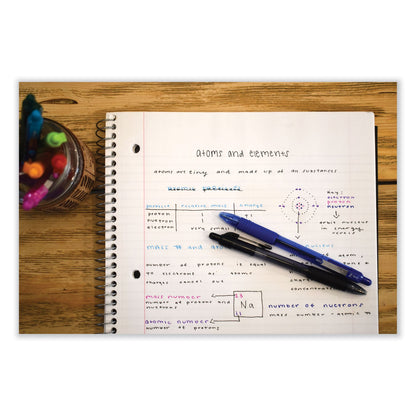 atoms and elements
atoms are tiny and made up of in substances
particle relative mass charge
proton 1
neutron 1
electron very small
key:
electron
proton
neutron
orbit nucleus
in energy
mass # and nucleus
number of protons is equal
to electrons so atoms
charges cancel out
mass number 23
number of protons and
neutrons
Na
11
atomic number
number of protons
number of neutrons
mass number - atomic #